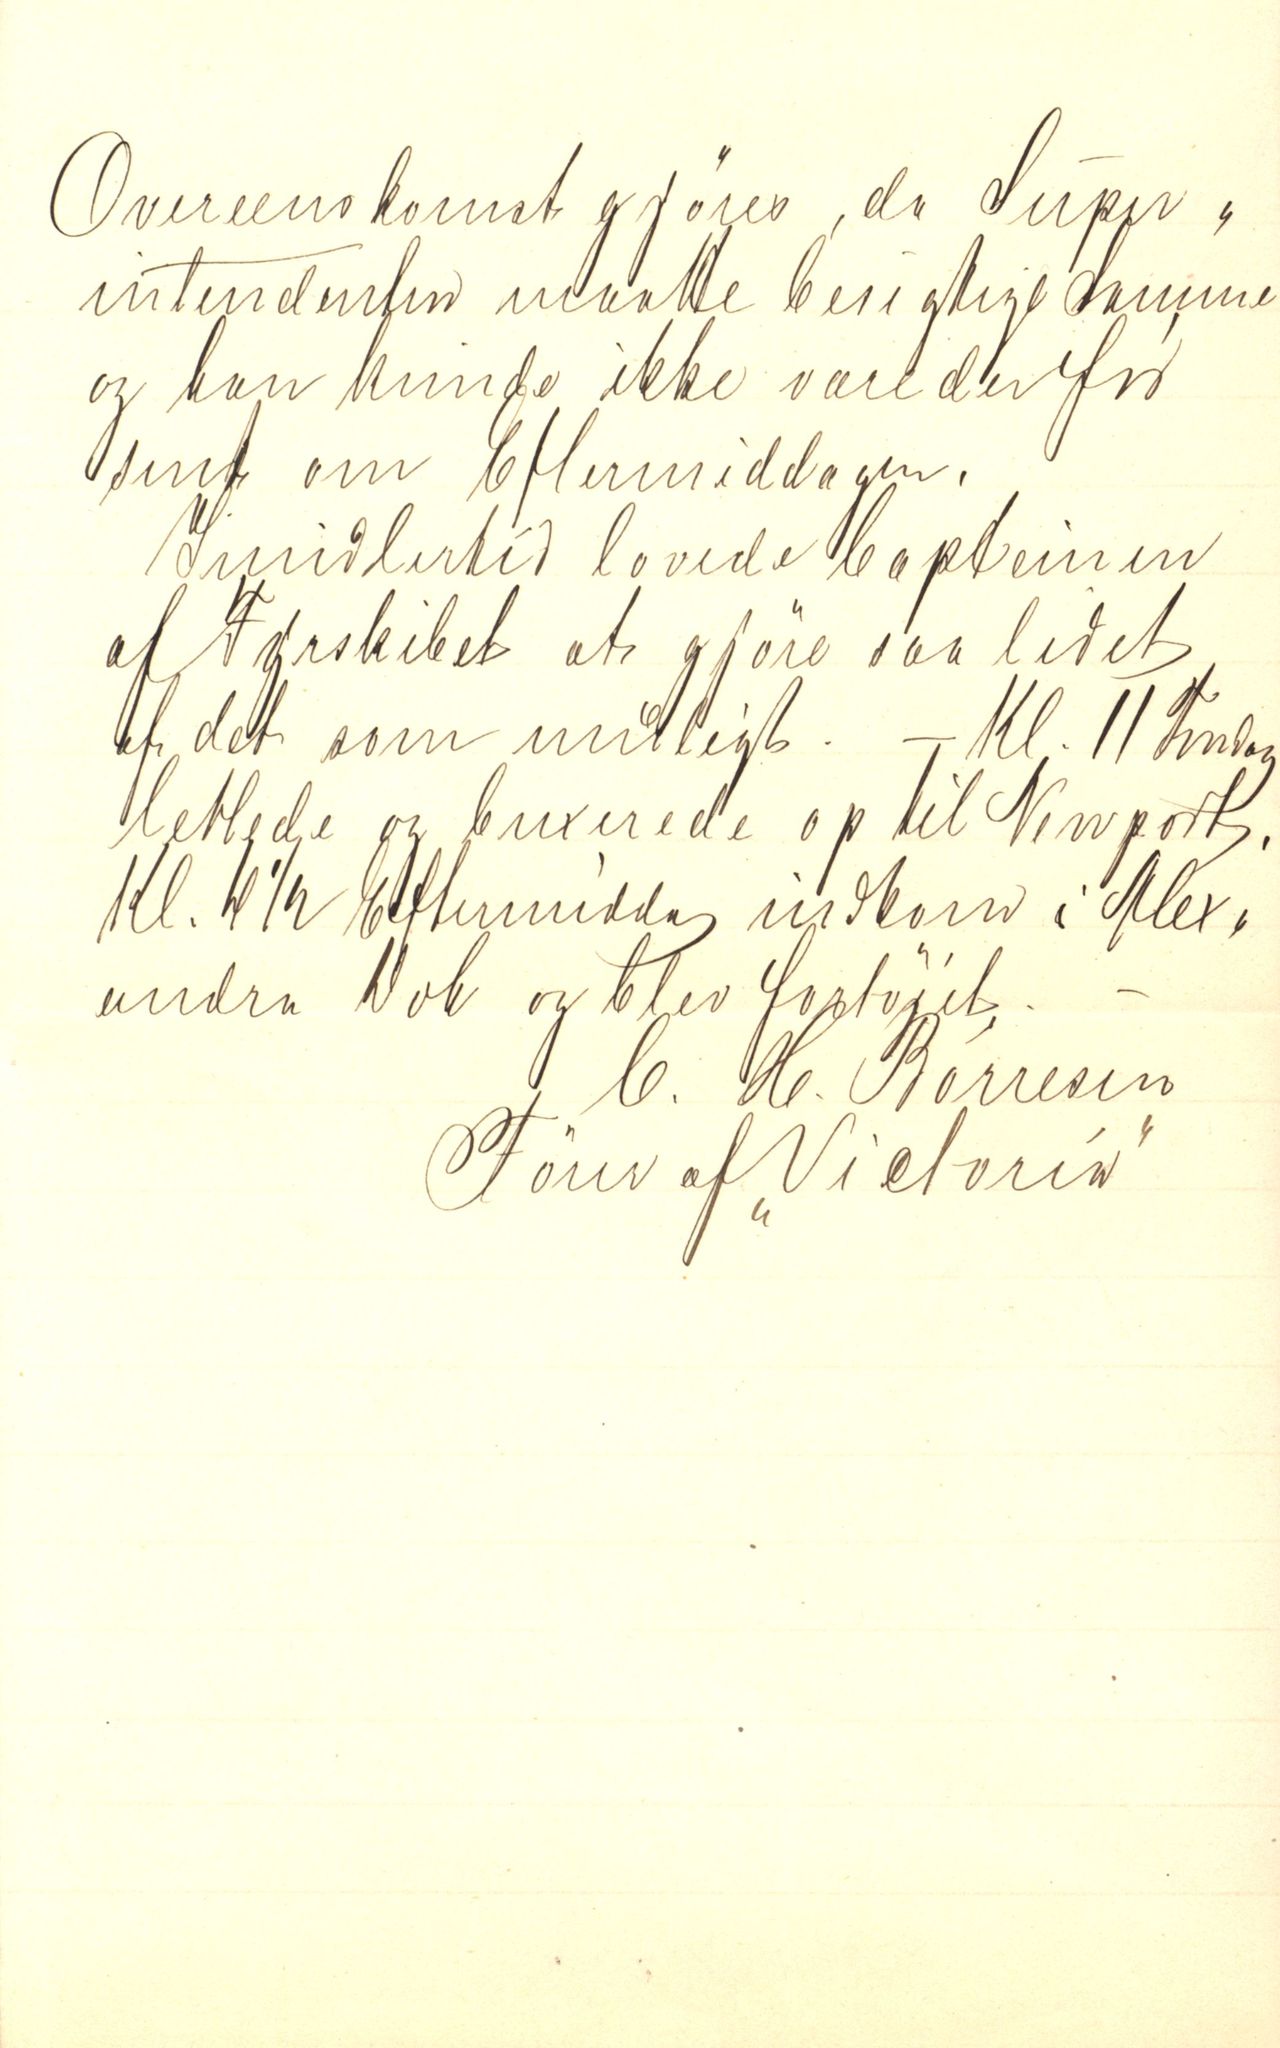 Overeenskomst gjöres, da Super„
intendenten maatte besigtige Samme
og han kunde ikke være der för
sent om Eftermiddagen.
Imidlertid lovede Capteinen
af Fyrskibet at gjöre saa lidet
af det som muligt. — Kl. 11 Formdag
lettede og buxerede op til Newport.
Kl. 4 1/2 Eftermiddag indkom i Alex„
andra Dok og blev fortöjet. —
C. H. Börresen
Förer af „Victoria"